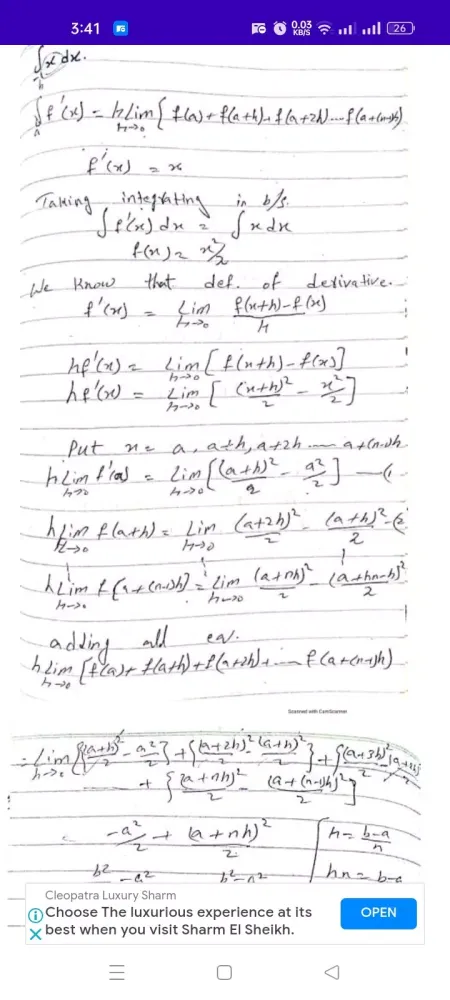 3:41
0.03
KB/S
26
∫x dx.
∫f'(x) = h Lim h→0 { f(a) + f(a+h) + f(a+2h) ---- f(a+(n-1)h)
f'(x) = x
Taking integrating in b/s.
∫f'(x) dx = ∫x dx
f(x) = x²/2
We know that def. of derivative.
f'(x) = Lim h→0 f(x+h) - f(x) / h
hf'(x) = Lim h→0 [f(x+h) - f(x)]
hf'(x) = Lim h→0 [(x+h)²/2 - x²/2]
Put x = a, a+h, a+2h ---- a+(n-1)h
h Lim h→0 f'(a) = Lim h→0 [(a+h)²/2 - a²/2] —(1
h Lim h→0 f(a+h) = Lim h→0 (a+2h)²/2 - (a+h)²/2 -(2
h Lim h→0 f(a+(n-1)h) = Lim h→0 (a+nh)²/2 - (a+hn-h)²/2
adding all
h Lim h→0 [f(a) + f(a+h) + f(a+2h) + ---- f(a+(n-1)h)
Scanned with CamScanner
= Lim h→0 [{(a+h)²/2 - a²/2} + {(a+2h)²/2 (a+h)²/2} + {(a+3h)²/2
+ {(a+nh)²/2 - (a+(n-1)h)²/2}]
-a²/2 + (a+nh)²/2
h = b-a/n
b² - a²
b² - a²
hn = b-a
Cleopatra Luxury Sharm
Choose The luxurious experience at its
best when you visit Sharm El Sheikh.
OPEN